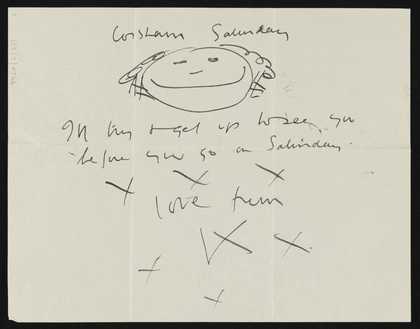 Corsham Saturday
I'll try & get up to see you
before you go on Saturday.
x x x
love from
V X x
x
x